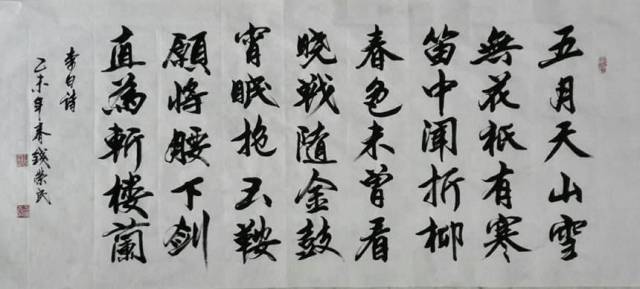 五月天山雪
無花祇有寒
笛中闻折柳
春色未曾看
晓戰随金鼓
宵眠抱玉鞍
願将腰下劍
直為斬楼蘭
李白诗
乙未年春钱荣民